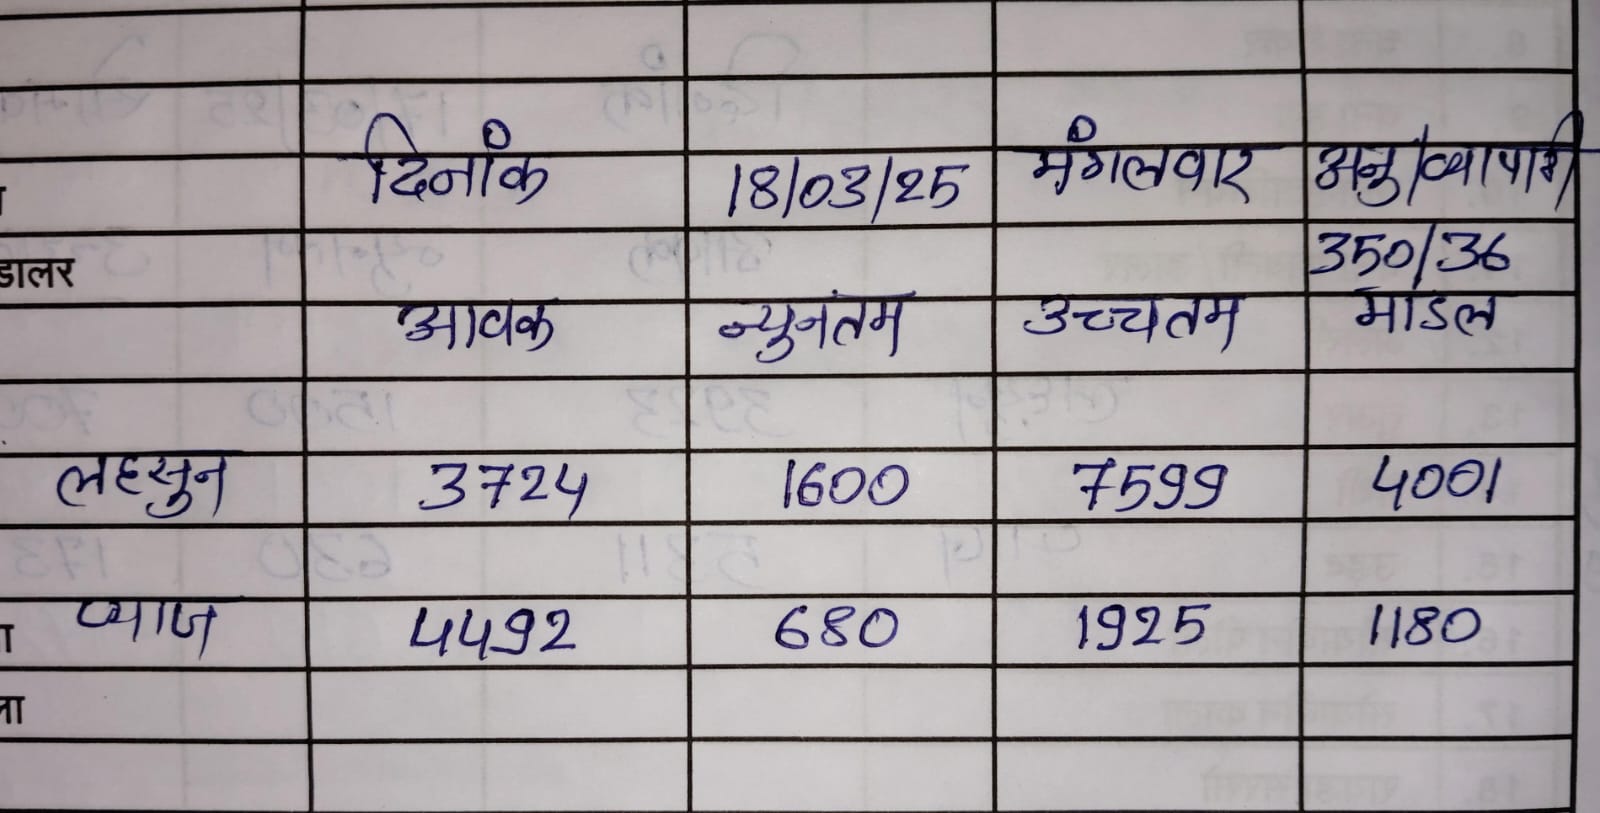 दिनांक 18/03/25 मंगलवार अनु/व्यापारी
डालर 350/36
आवक न्युनंतम उच्चतम मांडल
लहसुन 3724 1600 7599 4001
प्याज 4492 680 1925 1180